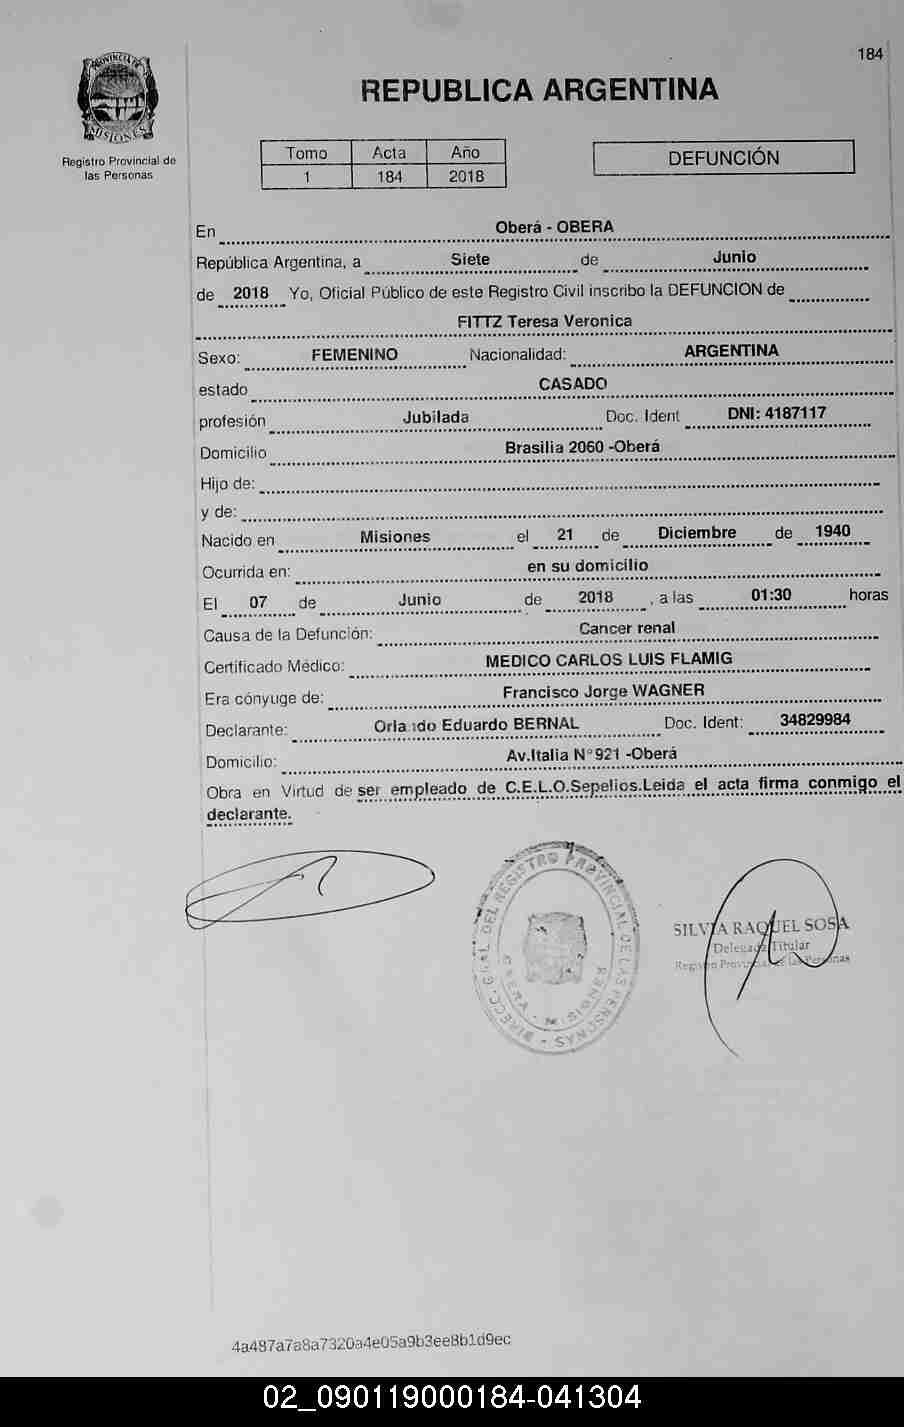 184
PROVINCIA DE
MISIONES
Registro Provincial de
las Personas
REPUBLICA ARGENTINA
Tomo Acta Año
1 184 2018
DEFUNCIÓN
En Oberá - OBERA
República Argentina, a Siete de Junio
de 2018 Yo, Oficial Público de este Registro Civil inscribo la DEFUNCION de
FITTZ Teresa Veronica
Sexo: FEMENINO Nacionalidad: ARGENTINA
estado CASADO
profesión Jubilada Doc. Ident DNI: 4187117
Domicilio Brasilia 2060 -Oberá
Hijo de:
y de:
Nacido en Misiones el 21 de Diciembre de 1940
Ocurrida en: en su domicilio
El 07 de Junio de 2018 , a las 01:30 horas
Causa de la Defunción: Cancer renal
Certificado Médico: MEDICO CARLOS LUIS FLAMIG
Era cónyuge de: Francisco Jorge WAGNER
Declarante: Orlando Eduardo BERNAL Doc. Ident: 34829984
Domicilio: Av.Italia N°921 -Oberá
Obra en Virtud de ser empleado de C.E.L.O.Sepelios.Leida el acta firma conmigo el
declarante.
DIRECC. GRAL DEL REGISTRO PROVINCIAL DE LAS PERSONAS
OBERA - MISIONES
SILVIA RAQUEL SOSA
Delegada Titular
Registro Provincial de las Personas
4a487a7a8a7320a4e05a9b3ee8b1d9ec
02_090119000184-041304